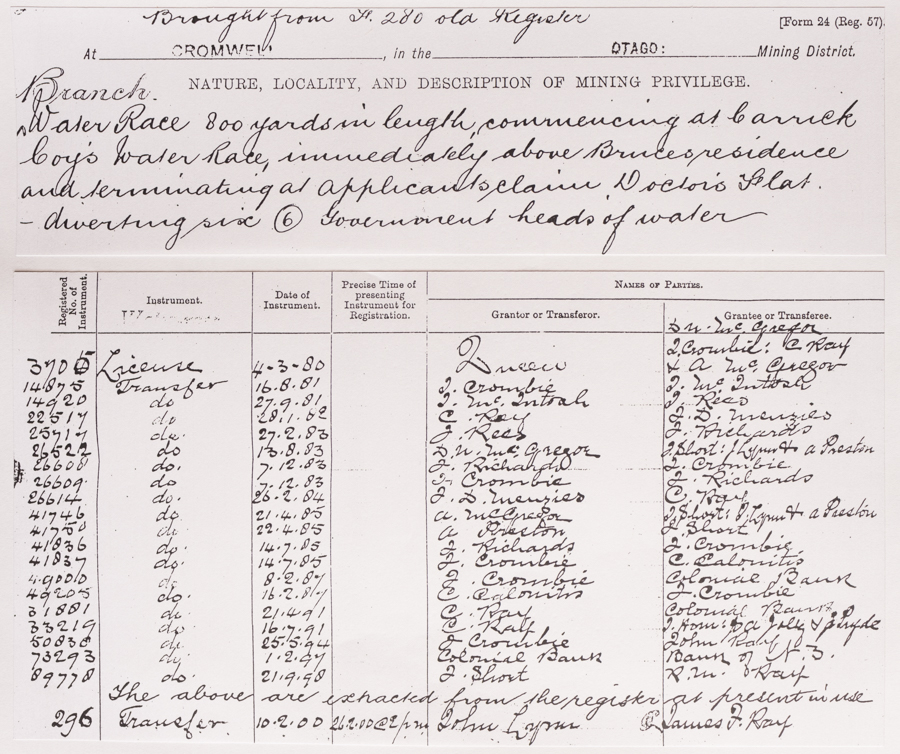 Brought from F. 280 old Register
[Form 24 (Reg. 57).
At CROMWELL, in the OTAGO: Mining District.
NATURE, LOCALITY, AND DESCRIPTION OF MINING PRIVILEGE.
Branch.
Water Race 800 yards in length, commencing at Carrick
Coy's Water Race, immediately above Bruces residence
and terminating at applicants claim Doctors Flat.
- diverting six (6) Government heads of water
Registered No. of Instrument.
Instrument.
Date of Instrument.
Precise Time of presenting Instrument for Registration.
NAMES OF PARTIES.
Grantor or Transferor.
Grantee or Transferee.
D. N. McGregor
J. Crombie: C Ray
3705 License 4-3-80 Queen & A McGregor
14875 Transfer 16.8.81 J. Crombie J. McIntosh
14920 do 27.9.81 J. McIntosh J. Rees
22517 do 28.1.82 C. Ray J. D. Menzies
25717 do. 27.2.83 J. Rees J. Richards
26522 do 13.8.83 D. N. McGregor J. Short: J Lynn & A Preston
26608 do. 7.12.83 J. Richards J. Crombie
26609 do. 7.12.83 J. Crombie J. Richards
26614 do. 26.2.84 J. D. Menzies C. Ray
41746 do. 21.4.85 A. McGregor J. Short: J Lynn & A Preston
41750 do. 22.4.85 A Preston J. Short
41836 do. 14.7.85 J. Richards J. Crombie
41837 do. 14.7.85 J. Crombie C. Calonitis
49000 do 8.2.87 J. Crombie Colonial Bank
49205 do. 16.2.87 C. Calonitis J. Crombie
31881 do 21.4.91 C. Ray Colonial Bank
33219 do 16.7.91 C. Ray
50838 do 25.5.94 J Crombie John Ray
73293 do 1.2.97 Colonial Bank Bank of N.Z.
89778 do. 21.9.98 J. Short R. M. Ray
The above are extracted from the register at present in use
296 Transfer 10.2.00 26.2.00 @ 2 p.m John Lynn James F. Ray